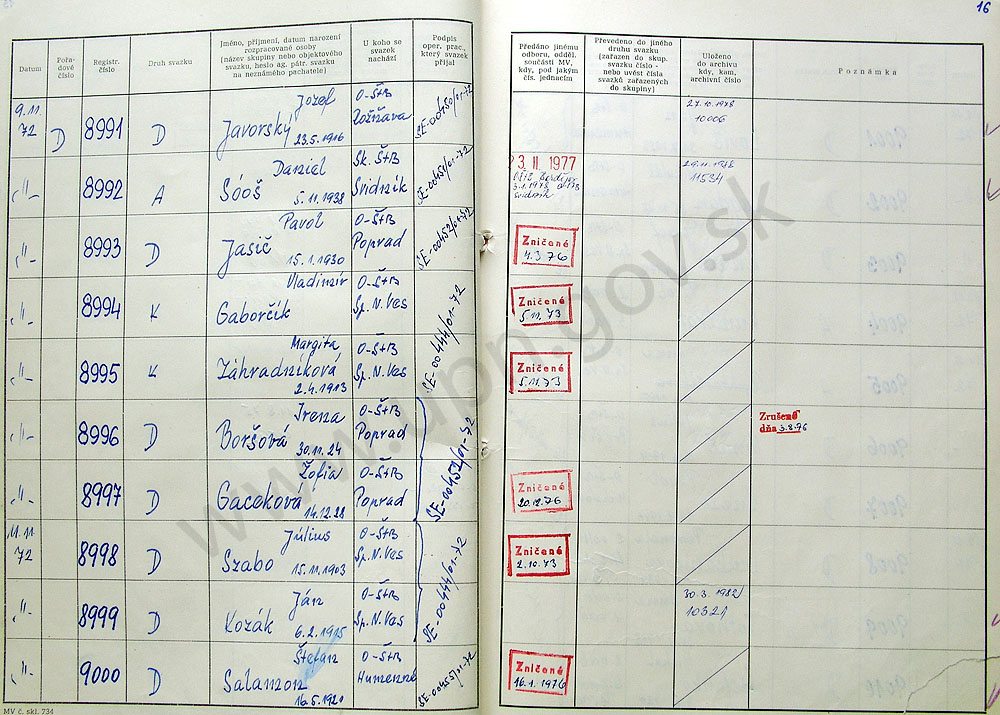 16
Datum
Pořa-
dové
číslo
Registr.
číslo
Druh svazku
Jméno, příjmení, datum narození
rozpracované osoby
(název skupiny nebo objektového
svazku, heslo ag. pátr. svazku
na neznámého pachatele)
U koho se
svazek
nachází
Podpis
oper. prac.,
který svazek
přijal
Předáno jinému
odboru, odděl.
součásti MV,
kdy, pod jakým
čís. jednacím
Převedeno do jiného
druhu svazku
(zařazen do skup.
svazku číslo -
nebo uvést čísla
svazků zařazených
do skupiny)
Uloženo
do archivu
kdy, kam,
archivní číslo
Poznámka
9.11.
72
D
8991
D
Jozef
Javorský
23.5.1916
O-ŠtB
Rožňava
SE-00450/01-72
27.10.1978
10006
"
8992
A
Daniel
Sóóš
5.11.1938
Sk. ŠtB
Svidník
SE-00451/01-72
23. II. 1977
Svidník
11534
"
8993
D
Pavol
Jasič
15.1.1930
O-ŠtB
Poprad
SE-00452/01-72
Zničené
4.3.76
"
8994
K
Vladimír
Gaborčík
O-ŠtB
Sp. N. Ves
SE-00444/01-72
Zničené
5.11.73
"
8995
K
Margita
Záhradníková
2.4.1913
O-ŠtB
Sp. N. Ves
Zničené
5.11.73
"
8996
D
Irena
Boršová
30.11.24
O-ŠtB
Poprad
SE-00452/01-72
Zrušené
dňa 3.8.76
"
8997
D
Žofia
Gaceková
14.12.28
O-ŠtB
Poprad
Zničené
20.12.76
11.11.
72
8998
D
Július
Szabo
15.11.1903
O-ŠtB
Sp. N. Ves
SE-00444/01-72
Zničené
2.10.73
"
8999
D
Ján
Kozák
6.2.1915
O-ŠtB
Sp. N. Ves
30.3.1982/
10321
"
9000
D
Štefan
Salamon
16.5.1921
O-ŠtB
Humenné
SE-00455/01-72
Zničené
16.1.1976
MV č. skl. 734
www.upn.gov.sk